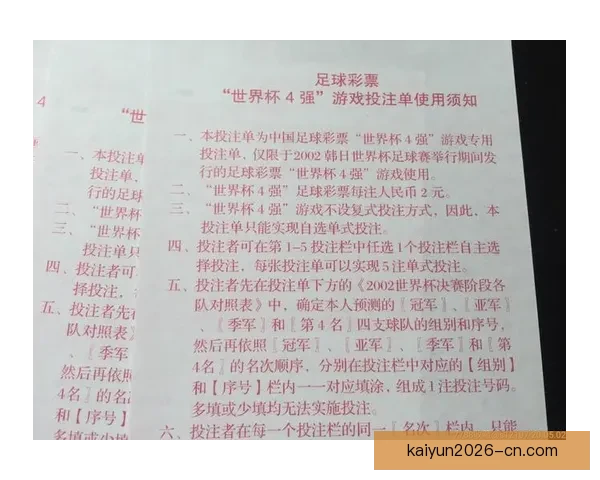 足球彩票
“世界杯 4 强”游戏投注单使用须知
一、本投注单为中国足球彩票“世界杯 4 强”游戏专用
投注单，仅限于2002 韩日世界杯足球赛举行期间发
行的足球彩票“世界杯 4 强”游戏使用。
二、“世界杯 4 强”足球彩票每注人民币 2 元。
三、“世界杯 4 强”游戏不设复式投注方式，因此，本
投注单只能实现自选单式投注。
四、投注者可在第 1-5 投注栏中任选 1个投注栏自主选
择投注，每张投注单可以实现 5 注单式投注。
五、投注者先在投注单下方的《2002世界杯决赛阶段各
队对照表》中，确定本人预测的〖冠军〗、〖亚军〗
、〖季军〗和〖第 4 名〗四支球队的组别和序号，
然后再依照〖冠军〗、〖亚军〗、〖季军〗和〖第
4名〗的名次顺序，分别在投注栏中对应的【组别】
和【序号】栏内一一对应填涂，组成 1 注投注号码。
多填或少填均无法实施投注。
六、投注者在每一个投注栏的同一〖名次〗栏内，只能
4
“世
一、本投注单
投注单，
行的足球
二、“世界杯
三、“世界杯
投注单只
四、投注者可
择投注，
五、投注者先在
队对照表》
、〖季军
然后再依照
4名〗的名
和【序号】
多填或少填
kaiyun2026-cn.com